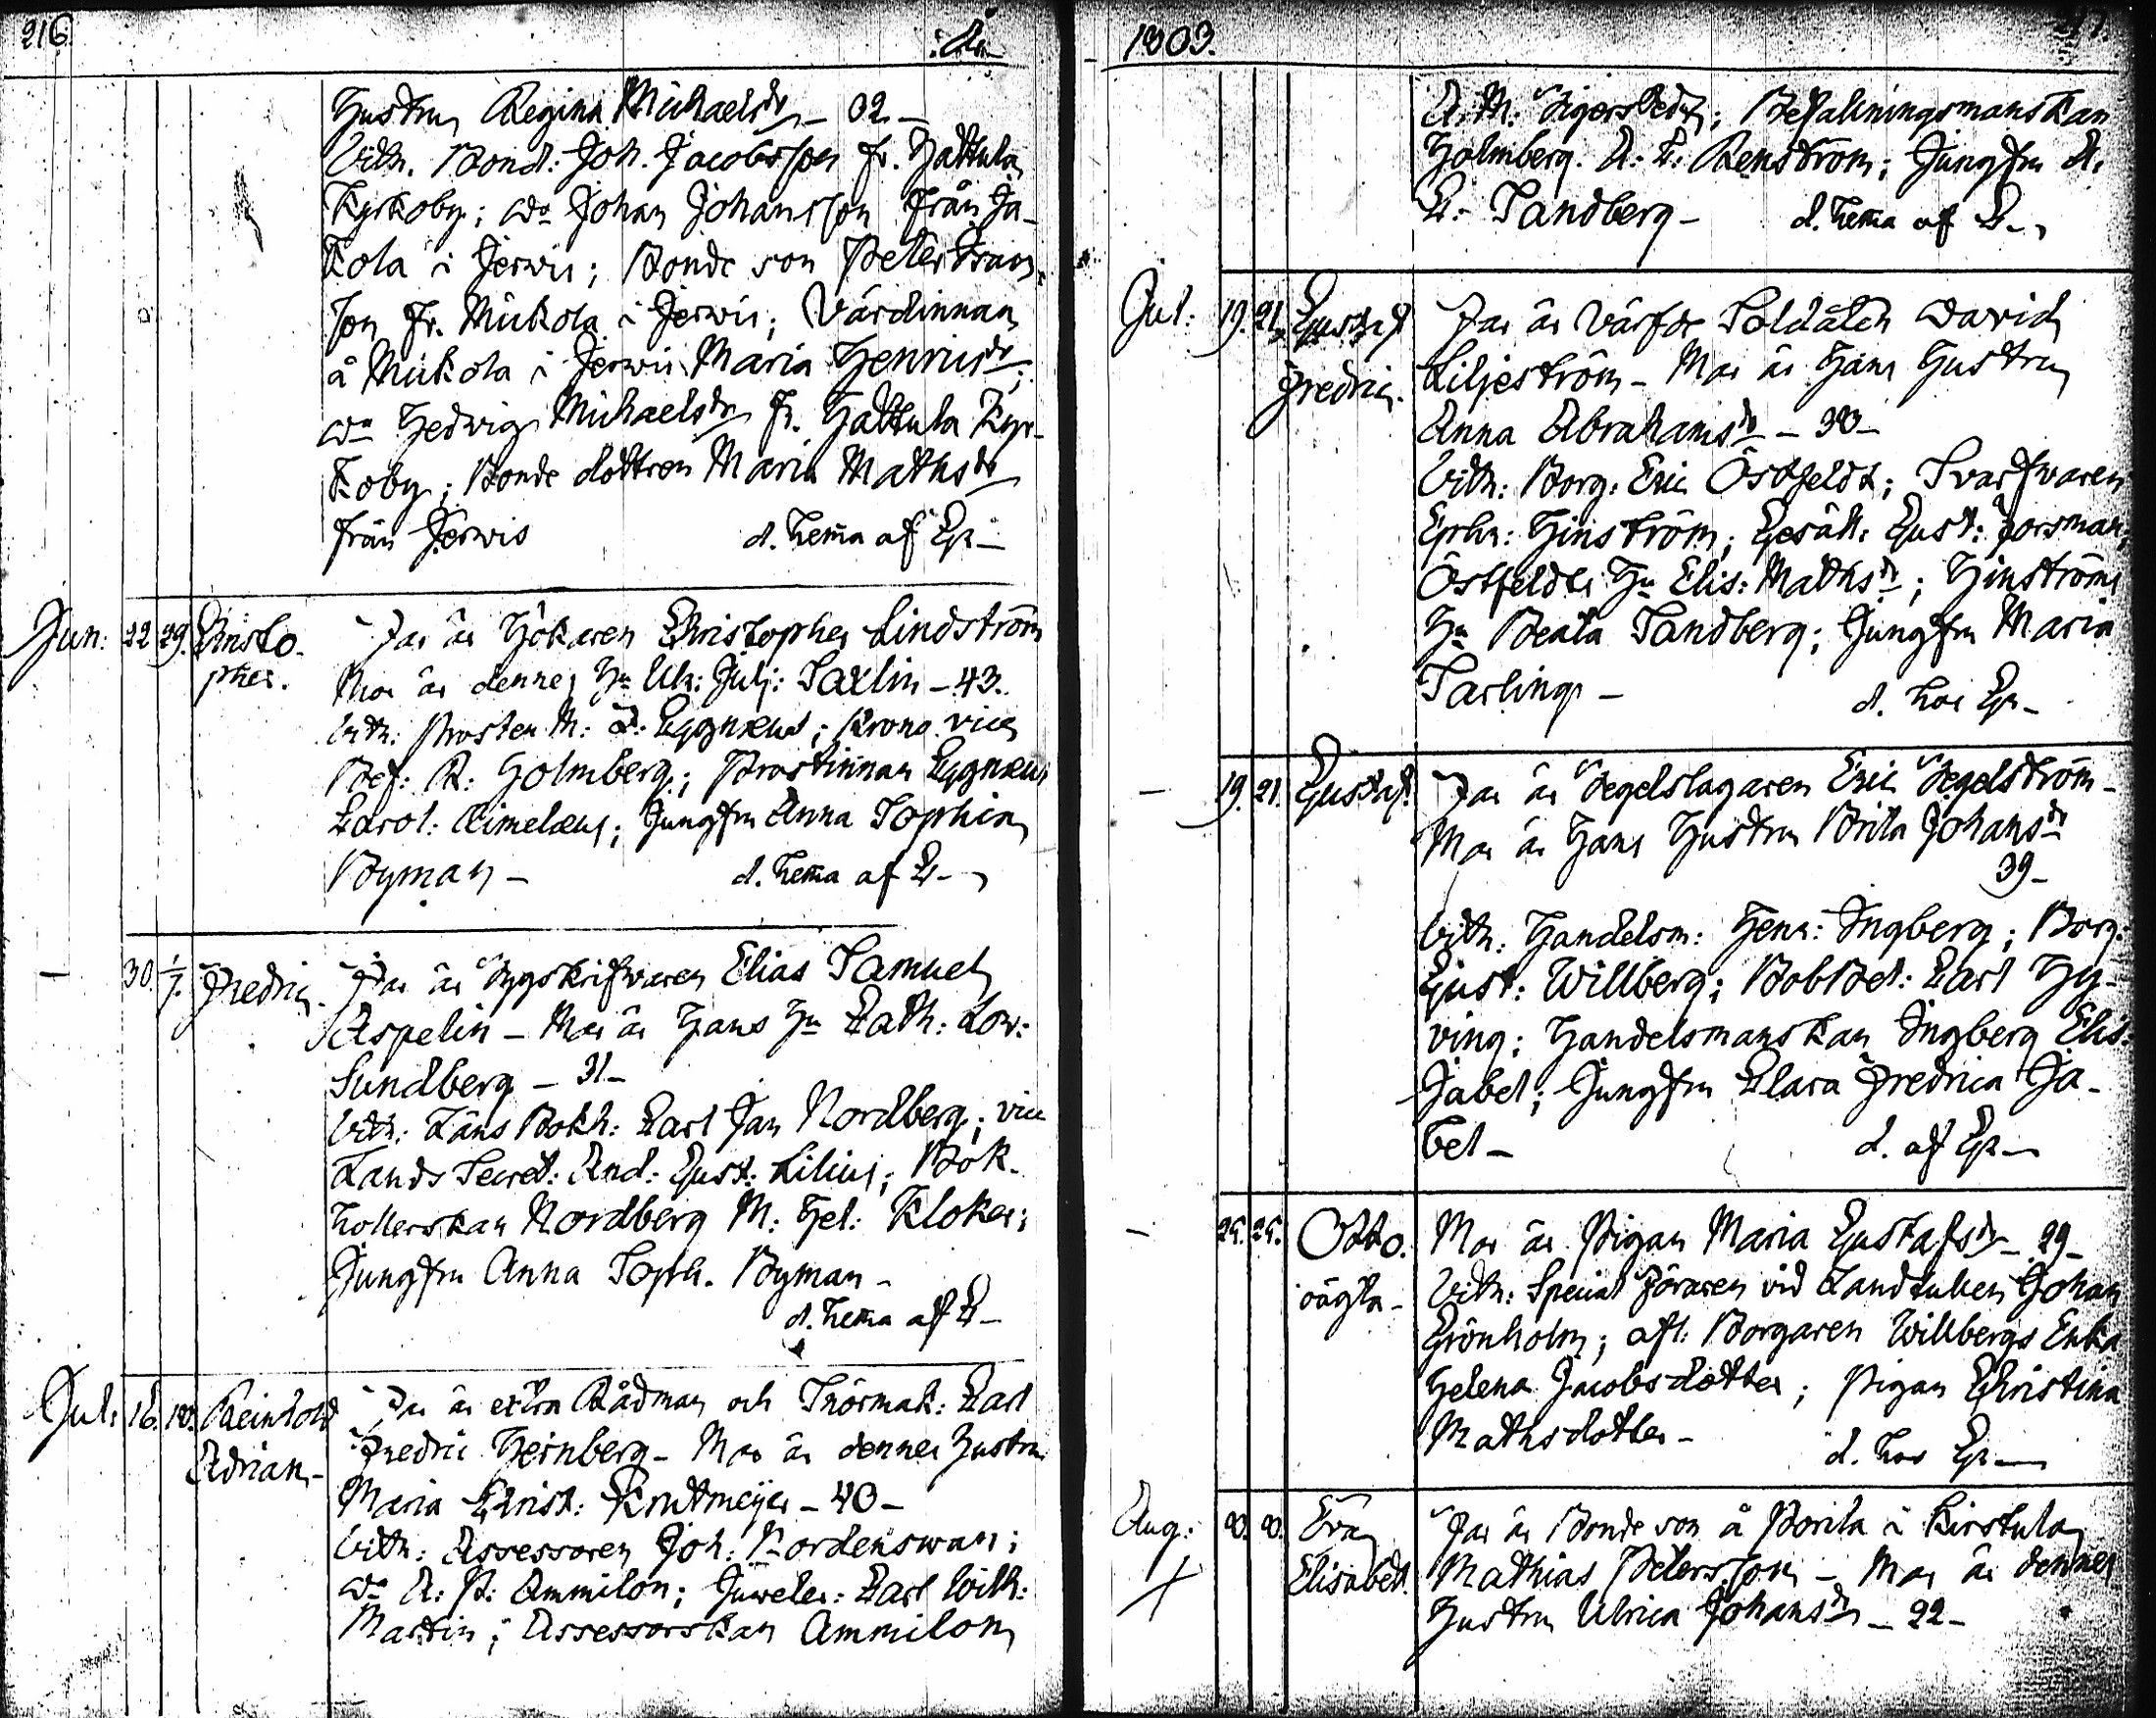 216.
Hustru Regina Michaelsdr – 32 –
Vittn. Bond: Joh. Jacobsson fr. Hattula
Kyrkoby; do Johan Johansson från Ja-
kola i Jerwis; Bonde son Peter Frans-
son fr. Mickola i Jerwis; Värdinnan
å Mickola i Jerwis Maria Henricsdr;
do Hedwig Michaelsdr fr. Hattula Kyr-
koby; Bonde dottren Maria Mathsdr
från Jerwis d. hema af
Jun: 22 29. Christo- Far är Hökaren Christopher Lindström
pher. Mor är dennes Hu Ulr: Julj: Saxlin – 43.
Vittn: Prosten M: Z: Cygnæus; Krono vice
Bef: A: Holmberg; Prostinnan Cygnæus
Carol: Rimelæus; Jungfru Anna Sophia
Byman – d. hema af C –
– 30. 1/7. Fredric. Far är Tygskrifvaren Elias Samuel
Aspelin – Mor är Hans Hu Cath: Lov:
Sundberg – 31 –
Vittn: Läns Bokh: Carl Jan Nordberg; vice
Lands Secret: And: Gust: Lilius; Bok-
hollerskan Nordberg M: Hel: Kloker;
Jungfru Anna Soph. Byman –
d. hema af C –
Jul: 16. 18. Reinhold Far är extra Rådman och Snörmak: Carl
Adrian – Fredric Hernberg – Mor är dennes Hustru
Maria Christ: Krutmeijer – 40 –
Vittn: Assessoren Joh: Nordenswan;
do A: P: Ammilon; Juweler: Carl Wilh:
Martin; Assessorskan Ammilon
1803.
A: M: Segerstedt; Befallningsmanskan
Holmberg. A: C: Renström; Jungfru A.
C. Sandberg – d. hema af C –
Jul: 19. 21. Gustaf Far är Värfde Soldaten David
Fredric. Liljeström – Mor är Hans Hustru
Anna Abrahamsdr – 38 –
Vittn: Borg: Eric Östfeldt; Svarfvaren
Ephr: Hinström; Gesäll: Gust: Forsman;
Östfeldts Hu Elis: Mathsdr; Hinströms
Hu Beata Sandberg; Jungfru Maria
Sarling – d. hos
– 19. 21. Gustaf. Far är Segelslagaren Eric Segelström –
Mor är Hans Hustru Brita Johansdr
39 –
Vittn: Handelsm: Henr: Ingberg; Borg:
Gust: Willberg; Carl Hy-
ving; Handelsmanskan Ingberg Elis:
Jabel; Jungfru Clara Fredrica Ja-
bel – d. af
– 24. 24. Otto. Mor är Pigan Maria Gustafsdr – 29 –
oägta – Vittn: Johan
Grönholm; afl: Borgaren Willbergs Enka
Helena Jacobsdotter; Pigan Christina
Mathsdotter – d. hos
Aug: 8. 8. Eva Far är Bonde son å Porila i Kirstula
X Elisabeth. Mathias Petersson – Mor är dennes
Hustru Ulrica Johansdr – 22 –